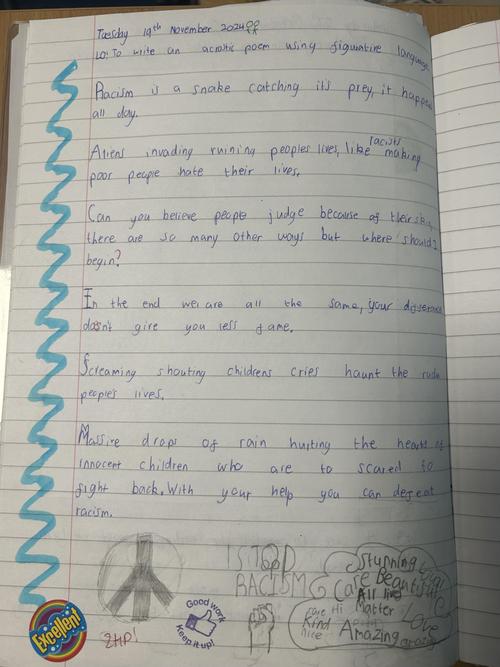 Tuesday 19th November 2024
LO: To write an acrostic poem using figurative language.
Racism is a snake catching it's prey, it happe
all day.
racists
Aliens invading ruining peoples lives, like making
poor people hate their lives.
Can you believe people judge because of their sk
there are so many other ways but where should I
begin?
In the end we are all the same, your differance
dosn't give you less fame.
Screaming shouting childrens cries haunt the rude
people's lives.
Massive drops of rain hurting the hearts of
innocent children who are to scared to
fight back. With your help you can defeat
racism.
STOP
RACISM
Stunning
Care Beautiful
All live
Matter
Hi
Kind
nice
Amazing
Love
amazing
Good work
Keep it up!
Excellent
2HP!